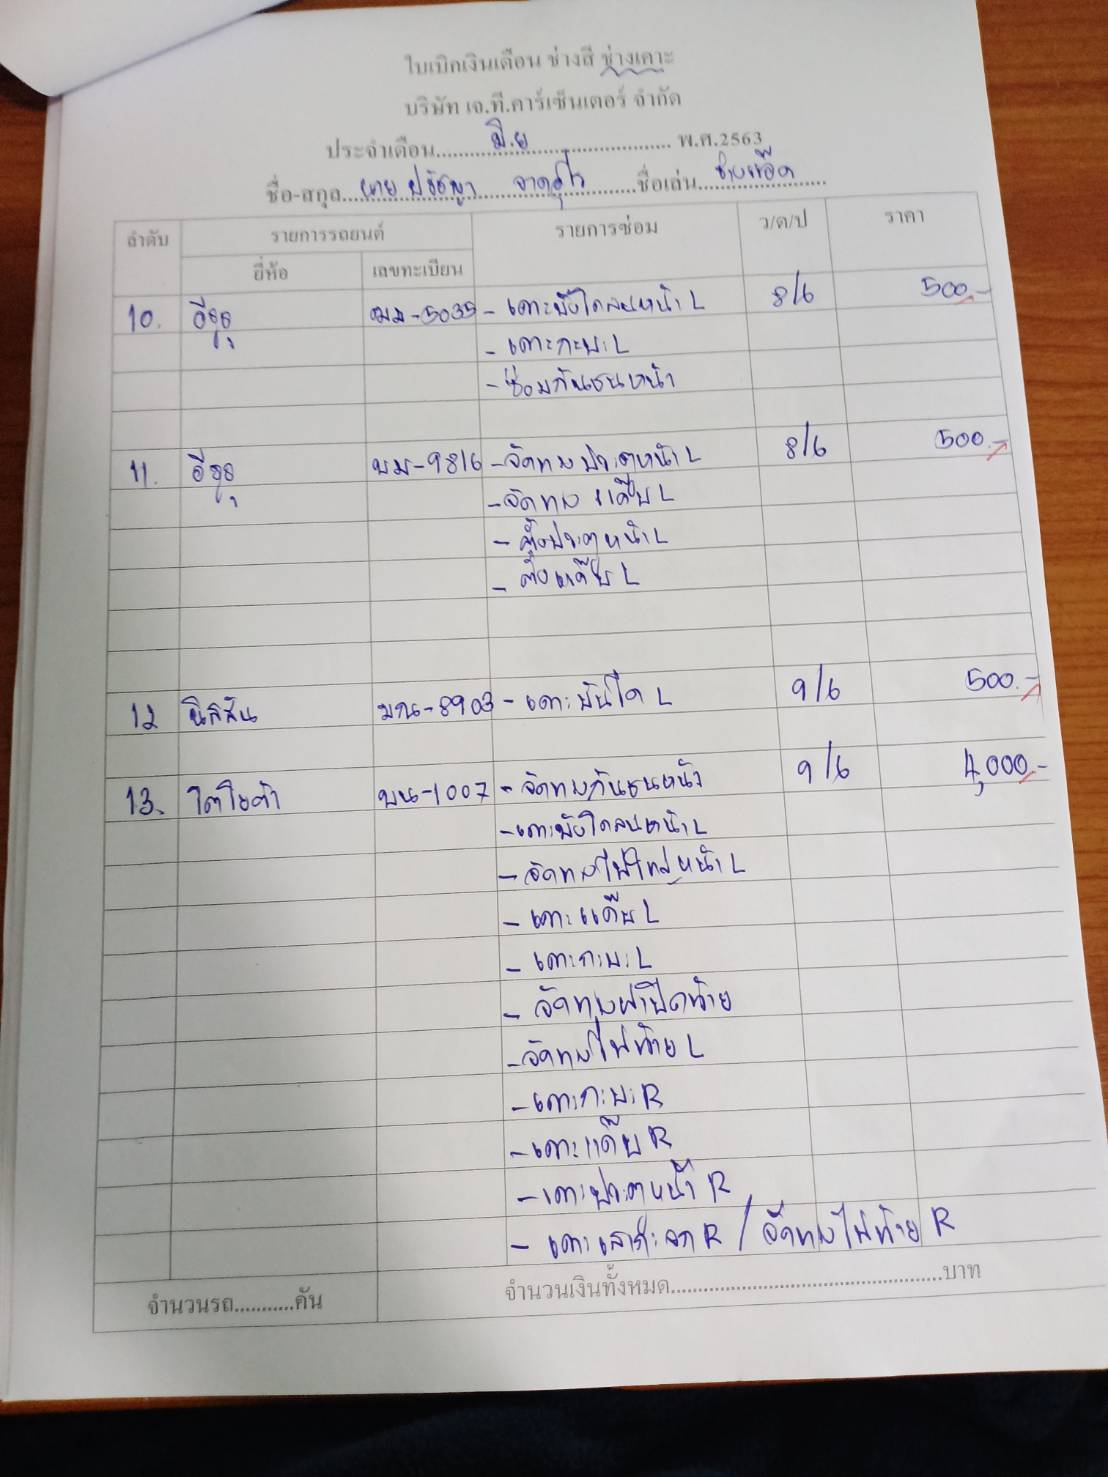 ใบเบิกเงินเดือน ช่างสี ช่างเคาะ
บริษัท เจ.ที.คาร์เซ็นเตอร์ จำกัด
ประจำเดือน......มิ.ย...... พ.ศ.2563
ชื่อ-สกุล...นาย ปรัชญา......ชื่อเล่น...ช่างแอ๊ด
ลำดับ รายการรถยนต์ รายการซ่อม ว/ด/ป ราคา
ยี่ห้อ เลขทะเบียน
10. อีซูซุ ฒม-5035 - เคาะบังโคลนหน้า L 8/6 500.-
- เคาะกะบะ L
- ซ่อมกันชนหน้า
11. อีซูซุ บม-9816 - จัดทรงประตูหน้า L 8/6 500.-
- จัดทรงแค๊บ L
- ตั้งประตูหน้า L
- ตั้งแค๊บ L
12 นิสสัน มก-8903 - เคาะบันได L 9/6 500.-
13. โตโยต้า บน-1007 - จัดทรงกันชนหน้า 9/6 4,000.-
- เคาะบังโคลนหน้า L
- จัดทรงไฟใหญ่หน้า L
- เคาะแค๊บ L
- เคาะกะบะ L
- จัดทรงฝาปิดท้าย
- จัดทรงไฟท้าย L
- เคาะกะบะ R
- เคาะแค๊บ R
- เคาะประตูหน้า R
- เคาะเสากระจก R / จัดทรงไฟท้าย R
จำนวนรถ...........คัน จำนวนเงินทั้งหมด..............................................บาท